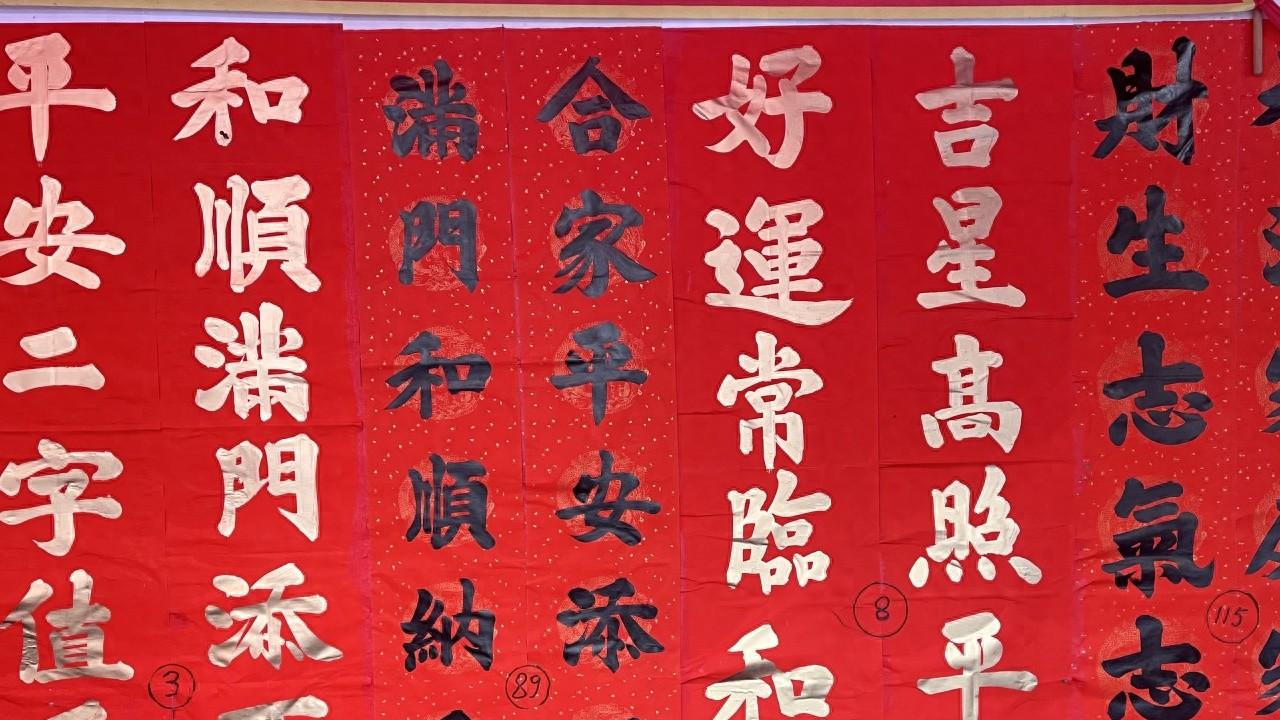 財生志氣志
吉星高照平
好運常臨和
合家平安添
滿門和順納
和順滿門添
平安二字值
115
8
89
3